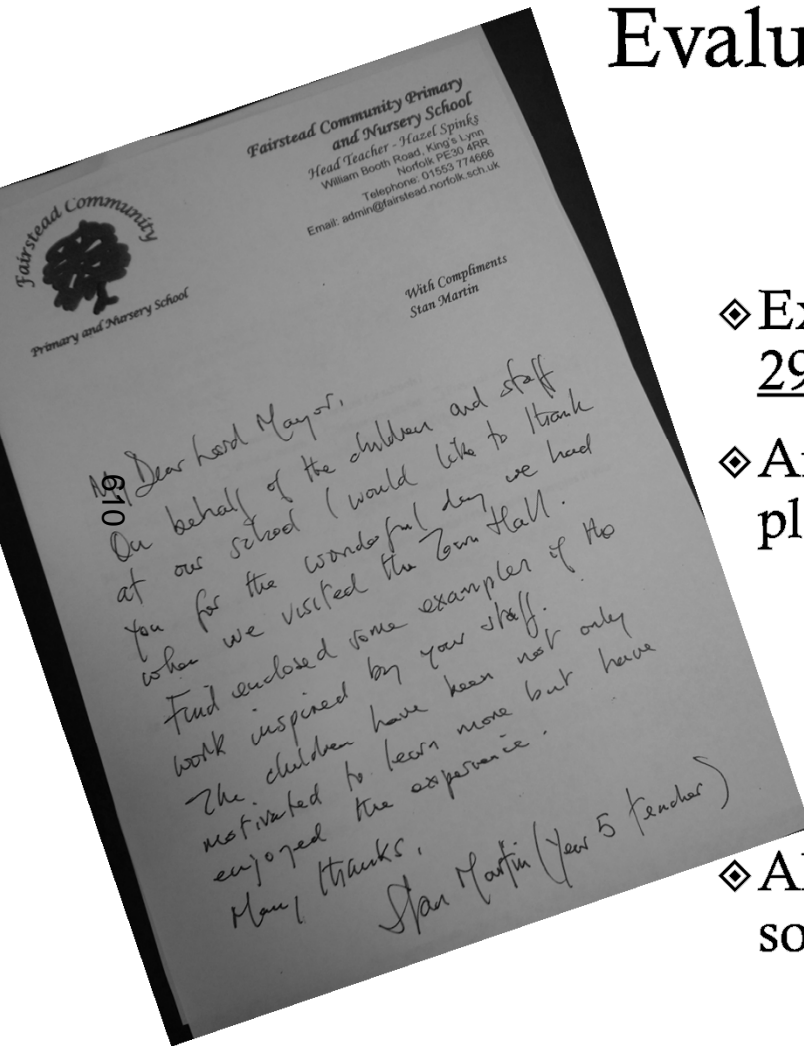 Evalu
Fairstead Community Primary
and Nursery School
Head Teacher - Hazel Spinks
William Booth Road, King's Lynn
Norfolk PE30 4RR
Telephone: 01553 774666
Email: admin@fairstead.norfolk.sch.uk
Fairstead Community
Primary and Nursery School
With Compliments
Stan Martin
My Dear Lord Mayor,
On behalf of the children and staff
at our school I would like to thank
you for the wonderful day we had
when we visited the Town Hall.
Find enclosed some examples of the
work inspired by your staff.
The children have been not only
motivated to learn more but have
enjoyed the experience.
Many thanks,
Stan Martin (Year 5 teacher)
019
Ex
29
pl
so